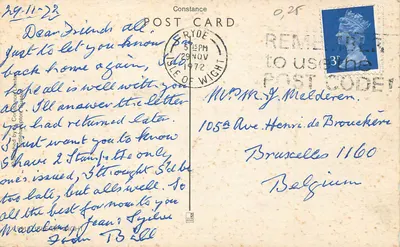 Constance
POST CARD
29-11-73
Dear Friends all,
just to let you know I'm
back home again, I do
hope all is well with you.
I'll answer the letter
you had returned later
I just want you to know
I have 2 stamps the only
one's issued, I thought I'd be
too late, but alls well. So
all the best for now to you
Madeleine, Jean &
from Bill
RYDE
5 PM
29 NOV
1973
ISLE OF WIGHT
REMEMBER
to use the
POST CODE
0,25
3½P
Mr M. J. Melderen.
105a Ave. Henri de Brouckère
Bruxelles 1160
Belgium